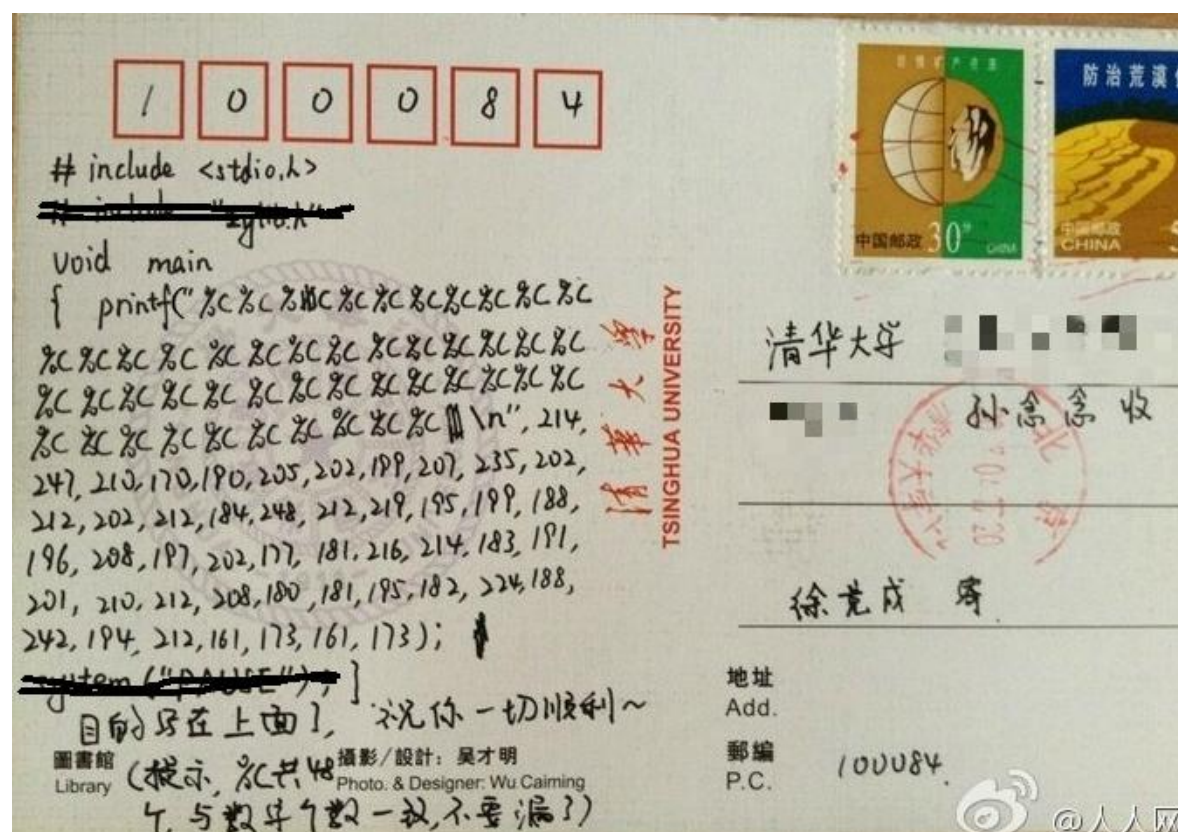 1 0 0 0 8 4
# include <stdio.h>
void main
{ printf("%c %c %c %c %c %c %c %c %c %c
%c %c %c %c %c %c %c %c %c %c %c %c %c
%c %c %c %c %c %c %c %c %c %c %c %c %c
%c %c %c %c %c %c %c %c %c %c \n", 214,
247, 210, 170, 190, 205, 202, 199, 207, 235, 202,
212, 202, 212, 184, 248, 212, 219, 195, 199, 188,
196, 208, 197, 202, 177, 181, 216, 214, 183, 191,
201, 210, 212, 208, 180, 181, 195, 182, 224, 188,
242, 194, 212, 161, 173, 161, 173);
}
目的写在上面了, 祝你一切顺利~
(提示, %c共48
个, 与数字个数一致, 不要漏了)
圖書館
Library
攝影/設計: 吴才明
Photo. & Designer: Wu Caiming
清華大學
TSINGHUA UNIVERSITY
中国邮政 30分 CHINA
防治荒漠
中国邮政
CHINA
清华大学
孙念念 收
徐竞成 寄
地址
Add.
郵編
P.C. 100084
@人人网